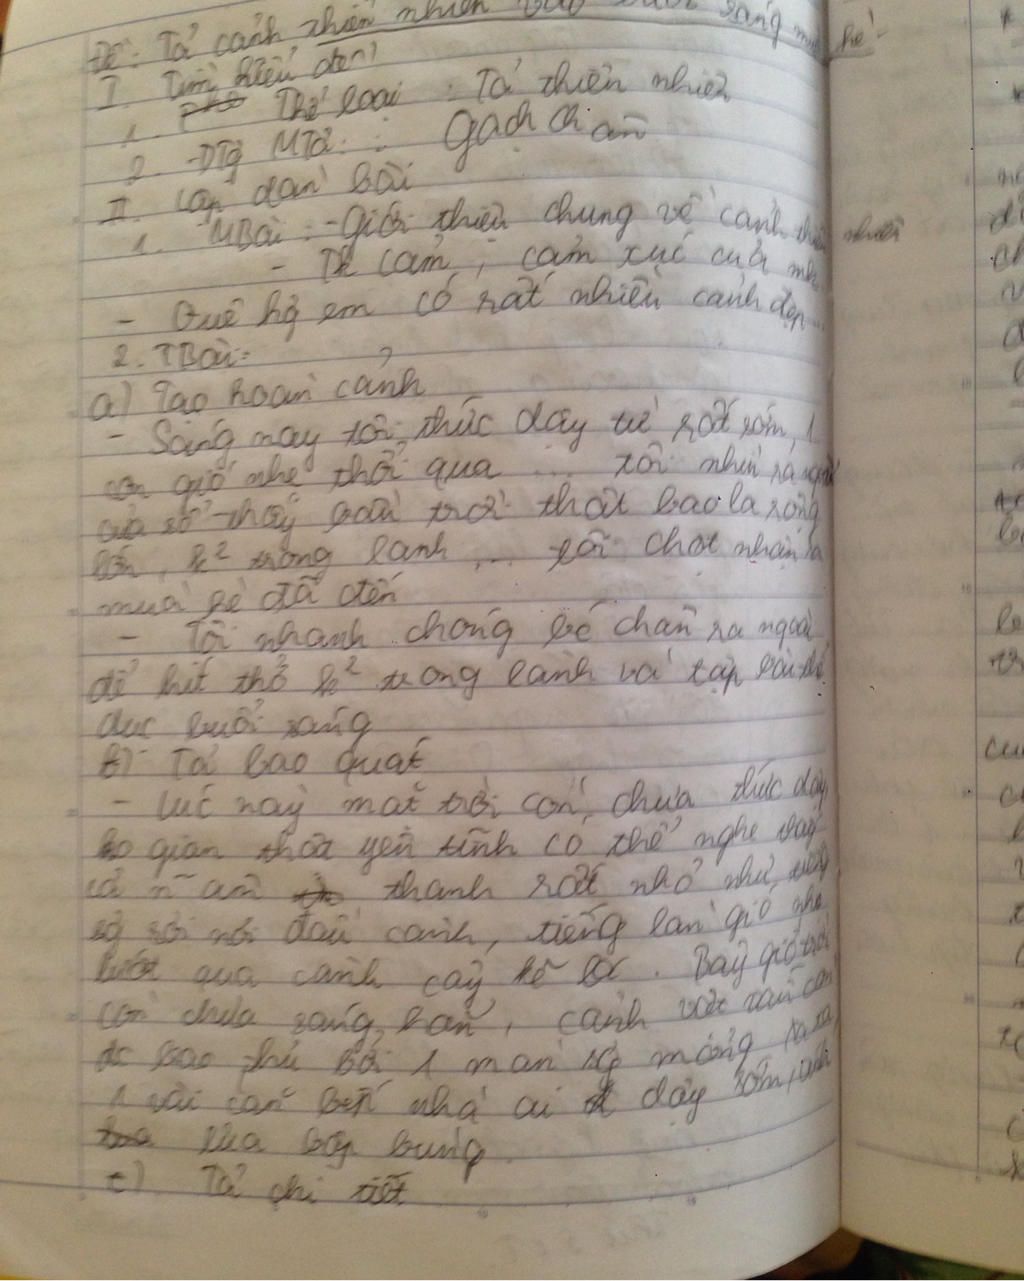 Đề: Tả cảnh thiên nhiên vào buổi sáng mùa hè.
I. Tìm hiểu đề
1. Thể loại : Tả thiên nhiên
2. -DTg MTả : Gạch chân
II. Lập dàn bài
1. MBài : - Giới thiệu chung về cảnh thiên nhiên
- cảm, cảm xúc của mk
- Quê hg em có rất nhiều cảnh đẹp...
2. TBài:
a) Tạo hoàn cảnh
- Sáng nay tôi thức dậy từ rất sớm, 1
cơn gió nhẹ thổi qua ... tôi nhìn ra ngoài
cửa sổ thấy bầu trời thật bao la rộng
lớn, k² trong lành ... tôi chợt nhận ra
mùa hè đã đến
- Tôi nhanh chóng bế chân ra ngoài
để hít thở k² trong lành và tập bài thể
dục buổi sáng
b) Tả bao quát
- Lúc này mặt trời còn chưa thức dậy
ko gian thật yên tĩnh có thể nghe thấy
cả n~ âm thanh rất nhỏ như tiếng
sg rơi nơi đầu cành, tiếng làn gió nhẹ
lướt qua cành cây kẽ lá. Bây giờ trời
còn chưa sáng hẳn, cảnh vật vẫn còn
đc bao phủ bởi 1 màn sg mỏng xa xa
1 vài căn bếp nhà ai dậy sớm, ánh
lửa bập bùng.
c) Tả chi tiết